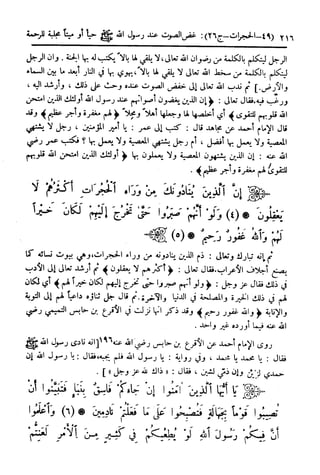 ٢١٦ (٤٩-الحجرات-ج٢٦): غض الصوت عند رسول الله ﷺ حياً أو ميتاً مجلبة للرحمة
الرجل ليتكلم بالكلمة من رضوان الله تعالى، لا يلقي لها بالاً يكتب له بها الجنة. وإن الرجل
ليتكلم بالكلمة من سخط الله تعالى لا يلقي لها بالاً، يهوي بها في النار أبعد ما بين السماء
والأرض). ثم ندب الله تعالى إلى خفض الصوت عنده وحث على ذلك، وأرشد اليه،
ورغب فيه، فقال تعالى: ﴿ إن الذين يغضون أصواتهم عند رسول الله أولئك الذين امتحن
الله قلوبهم للتقوى ﴾ أي أخلصها لها وجعلها أهلاً ومحلاً ﴿ لهم مغفرة وأجر عظيم ﴾ وقد
قال الإمام أحمد عن مجاهد قال: كتب إلى عمر: يا أمير المؤمنين، رجل لا يشتهي
المعصية ولا يعمل بها أفضل، أم رجل يشتهي المعصية ولا يعمل بها؟ فكتب عمر رضي
الله عنه: إن الذين يشتهون المعصية ولا يعملون بها ﴿ أولئك الذين امتحن الله قلوبهم
للتقوى لهم مغفرة وأجر عظيم ﴾.
﴿ إِنَّ الَّذِينَ يُنَادُونَكَ مِن وَرَاءِ الْحُجُرَاتِ أَكْثَرُهُمْ لَا
يَعْقِلُونَ * (٤) وَلَوْ أَنَّهُمْ صَبَرُوا حَتَّىٰ تَخْرُجَ إِلَيْهِمْ لَكَانَ خَيْراً
لَهُمْ وَاللهُ غَفُورٌ رَحِيمٌ * (٥) ﴾
ثم إنه تبارك وتعالى: ذم الذين ينادونه من وراء الحجرات، وهي بيوت نسائه كما
يصنع أجلاف الأعراب، فقال تعالى: ﴿ أكثرهم لا يعقلون ﴾ ثم أرشد تعالى إلى الأدب
في ذلك فقال عز وجل: ﴿ ولو أنهم صبروا حتى تخرج إليهم لكان خيراً لهم ﴾ أي لكان
لهم في ذلك الخيرة والمصلحة في الدنيا والآخرة. ثم قال جل ثناؤه داعياً لهم إلى التوبة
والإنابة ﴿ والله غفور رحيم ﴾ وقد ذكر انها نزلت في الأقرع بن حابس التميمي رضي
الله عنه فيما أورده غير واحد.
روى الإمام أحمد عن الأقرع بن حابس رضي الله عنه أنه نادى رسول الله ﷺ
فقال: يا محمد يا محمد، وفي رواية: يا رسول الله فلم يجبه، فقال: يا رسول الله إن
حمدي لزين وإن ذمي لشين، فقال: « ذاك لله عز وجل ».
﴿ يَا أَيُّهَا الَّذِينَ آمَنُوا إِنْ جَاءَكُمْ فَاسِقٌ بِنَبَإٍ فَتَبَيَّنُوا أَنْ
تُصِيبُوا قَوْماً بِجَهَالَةٍ فَتُصْبِحُوا عَلَىٰ مَا فَعَلْتُمْ نَادِمِينَ * (٦) وَاعْلَمُوا
أَنَّ فِيكُمْ رَسُولَ اللهِ لَوْ يُطِيعُكُمْ فِي كَثِيرٍ مِنَ الْأَمْرِ لَعَنِتُّمْ